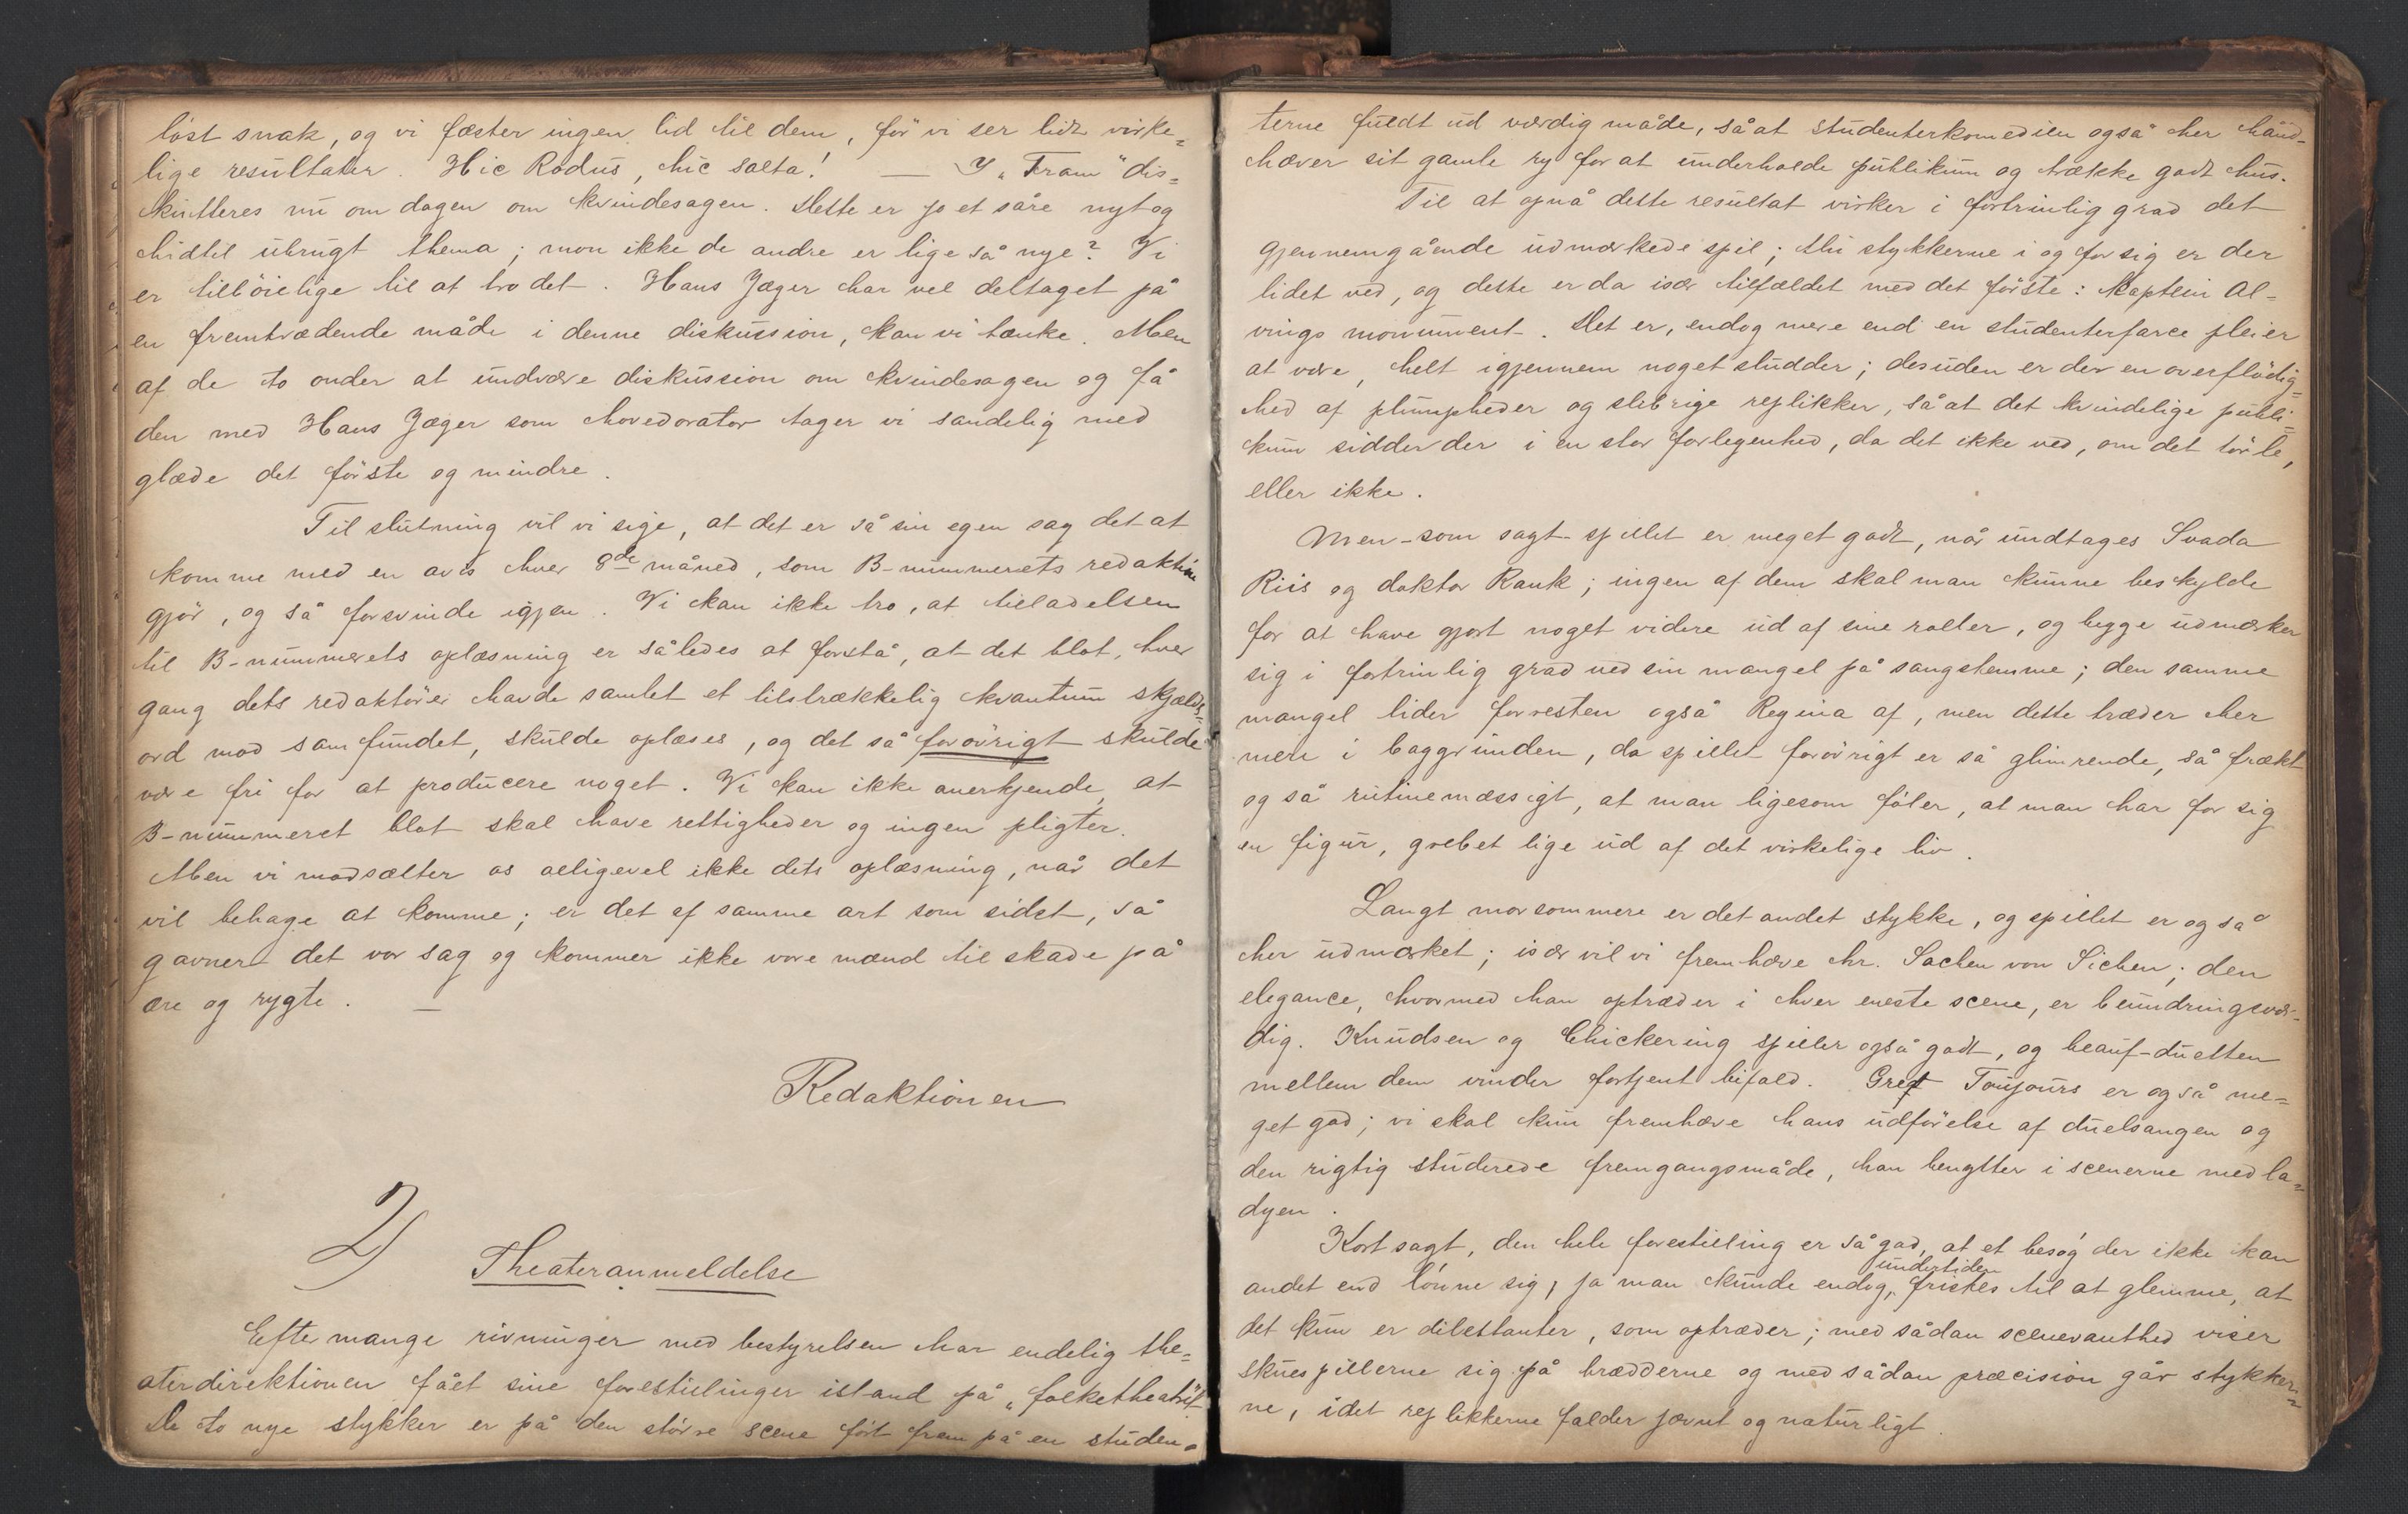 löst snak, og vi fæster ingen lid til dem, før vi ser lidt virke=
lige resultater. Hic Rodus, hic salta! — I „Fram" dis=
kutteres nu om dagen om kvindesagen. Dette er jo et såre nyt og
hidtil ubrugt thema; mon ikke de andre er lige så nye? Vi
er tilböielige til at tro det. Hans Jæger har vel deltaget på
en fremtrædende måde i denne diskussion, kan vi tænke. Men
af de to onder at undvære diskussion om kvindesagen og få
den med Hans Jæger som hovedorator tager vi sandelig med
glæde det förste og mindre.
Til slutning vil vi sige, at det er så sin egen sag det at
komme med en avis hver 8de måned, som B-nummerets redaktion
gjör, og så forsvinde igjen. Vi kan ikke tro, at tilladelsen
til B-nummerets oplæsning er således at forstå, at det blot, hver
gang dets redaktörer havde samlet et tilstrækkelig kvantum skjælds=
ord mod samfundet, skulde oplæses, og det så forövrigt skulde
være fri for at producere noget. Vi kan ikke anerkjende, at
B-nummeret blot skal have rettigheder og ingen pligter.
Men vi modsætter os alligevel ikke dets oplæsning, når det
vil behage at komme; er det af samme art som sidst, så
gavner det vor sag og kommer ikke vore mænd til skade på
ære og rygte. —
Redaktionen
2)
Theateranmeldelse
Efter mange rivninger med bestyrelsen har endelig the=
aterdirektionen fået sine forestillinger istand på „folketheatret".
De to nye stykker er på den större scene fört frem på en studen=
terne fuldt ud værdig måde, så at studenterkomedien også her händ-
hæver sit gamle ry for at underholde publikum og trække godt hus.
Til at opnå dette resultat virker i fortrinlig grad det
gjennemgående udmærkede spil; thi stykkerne i og for sig er der
lidet ved, og dette er da især tilfældet med det förste: Kaptein Al=
vings monument. Det er, endog mere end en studenterfarce pleier
at være, helt igjennem noget sludder; desuden er der en overflödig=
hed af plumpheder og slibrige replikker, så at det kvindelige publi=
kum sidder der i en stor forlegenhed, da det ikke ved, om det tör le,
eller ikke.
Men – som sagt – spillet er meget godt, når undtages Svada
Riis og doktor Rank; ingen af dem skal man kunne beskylde
for at have gjort noget videre ud af sine roller, og begge udmærker
sig i fortrinlig grad ved sin mangel på sangstemme; den samme
mangel lider forresten også Regina af, men dette træder her
mere i baggrunden, da spillet forövrigt er så glimrende, så frækt
og så rutinemæssigt, at man ligesom föler, at man har for sig
en figur, grebet lige ud af det virkelige liv.
Langt morsommere er det andet stykke, og spillet er også
her udmærket; især vil vi fremhæve hr. Sachen von Sichen; den
elegance, hvormed han optræder i hver eneste scene, er beundringsvær=
dig. Knudsen og Chickering spiller også godt, og beauf-duetten
mellem dem vinder fortjent bifald. Gref Toujours er også me=
get god; vi skal kun fremhæve hans udförelse af duelsangen og
den rigtig studerede fremgangsmåde, han benytter i scenerne med la=
dyen.
Kort sagt, den hele forestilling er så god, at et besög der ikke kan
andet end lönne sig, ja man kunde endog, undertiden fristes til at glemme, at
det kun er dilettanter, som optræder; med sådan scenevanthed viser
skuespillerne sig på brædderne og med sådan præcision går stykker=
ne, idet replikkerne falder jævnt og naturligt.